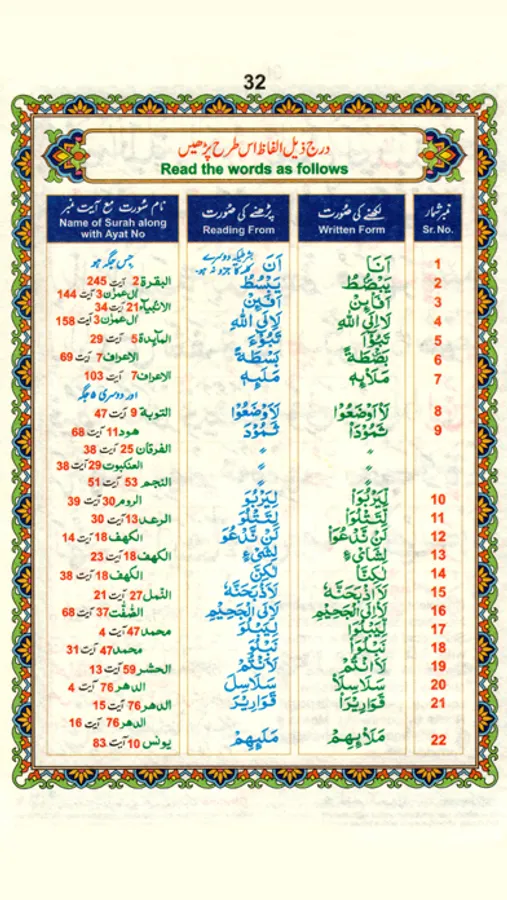 32
درج ذیل الفاظ اس طرح پڑھیں
Read the words as follows
نمبر شمار لکھنے کی صورت پڑھنے کی صورت نام سورت مع آیت نمبر
Sr. No. Written Form Reading From Name of Surah along with Ayat No
1 اَنَا اَنَ بشرطیکہ دوسرے کلمہ کا جزو نہ ہو۔ جس جگہ ہو
2 يَبْصُۜطُ يَبْسُطُ البقرة 2 آیت 245
3 اَفَا۟ئِنْ اَفَئِنْ اٰل عمرٰن 3 آیت 144
الانبیآء 21 آیت 34
4 لَا۟اِلَى اللّٰهِ لَاِلَى اللّٰهِ اٰل عمرٰن 3 آیت 158
5 تَبُوْٓءَا۟ تَبُوْٓءَ المآیدة 5 آیت 29
6 بَصْۜطَةً بَسْطَةً الاعراف 7 آیت 69
7 مَلَا۟ئِهٖ مَلَئِهٖ الاعراف 7 آیت 103
اور دوسری ٥ جگہ
8 لَا۟اَوْضَعُوْا لَاَوْضَعُوْا التوبة 9 آیت 47
9 ثَمُوْدَا۟ ثَمُوْدَ هود 11 آیت 68
〃 〃 الفرقان 25 آیت 38
〃 〃 العنکبوت 29 آیت 38
〃 〃 النجم 53 آیت 51
10 لِيَرْبُوَا۟ لِيَرْبُوَ الروم 30 آیت 39
11 لِتَتْلُوَا۟ لِتَتْلُوَ الرعد 13 آیت 30
12 لَنْ نَّدْعُوَا۟ لَنْ نَّدْعُوَ الکهف 18 آیت 14
13 لِشَا۟یْءٍ لِشَیْءٍ الکهف 18 آیت 23
14 لٰكِنَّا۟ لٰكِنَّ الکهف 18 آیت 38
15 لَا۟اَذْبَحَنَّهٗ لَاَذْبَحَنَّهٗ النّمل 27 آیت 21
16 لَا۟اِلَى الْجَحِيْمِ لَاِلَى الْجَحِيْمِ الصّٰفّٰت 37 آیت 68
17 لِيَبْلُوَا۟ لِيَبْلُوَ محمد 47 آیت 4
18 نَبْلُوَا۟ نَبْلُوَ محمد 47 آیت 31
19 لَا۟اَنْتُمْ لَاَنْتُمْ الحشر 59 آیت 13
20 سَلَاسِلَا۟ سَلَاسِلَ الدهر 76 آیت 4
21 قَوَارِيْرَا۟ قَوَارِيْرَ الدهر 76 آیت 15
الدهر 76 آیت 16
22 مَلَا۟ئِهِمْ مَلَئِهِمْ یونس 10 آیت 83